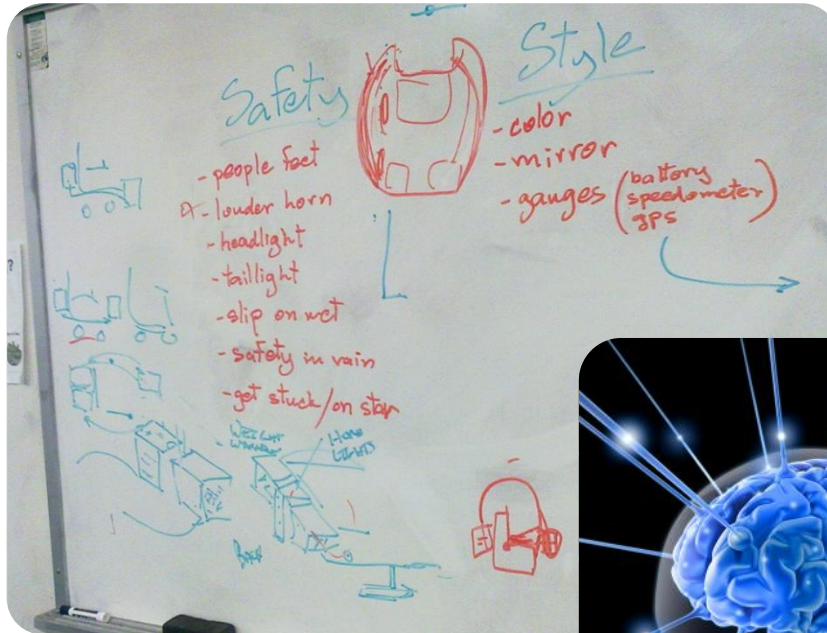 Safety
- people feet
- louder horn
- headlight
- taillight
- slip on wet
- safety in rain
- get stuck/on star
Style
- color
- mirror
- gauges (battery
speedometer
gps)
HORN
LIGHTS